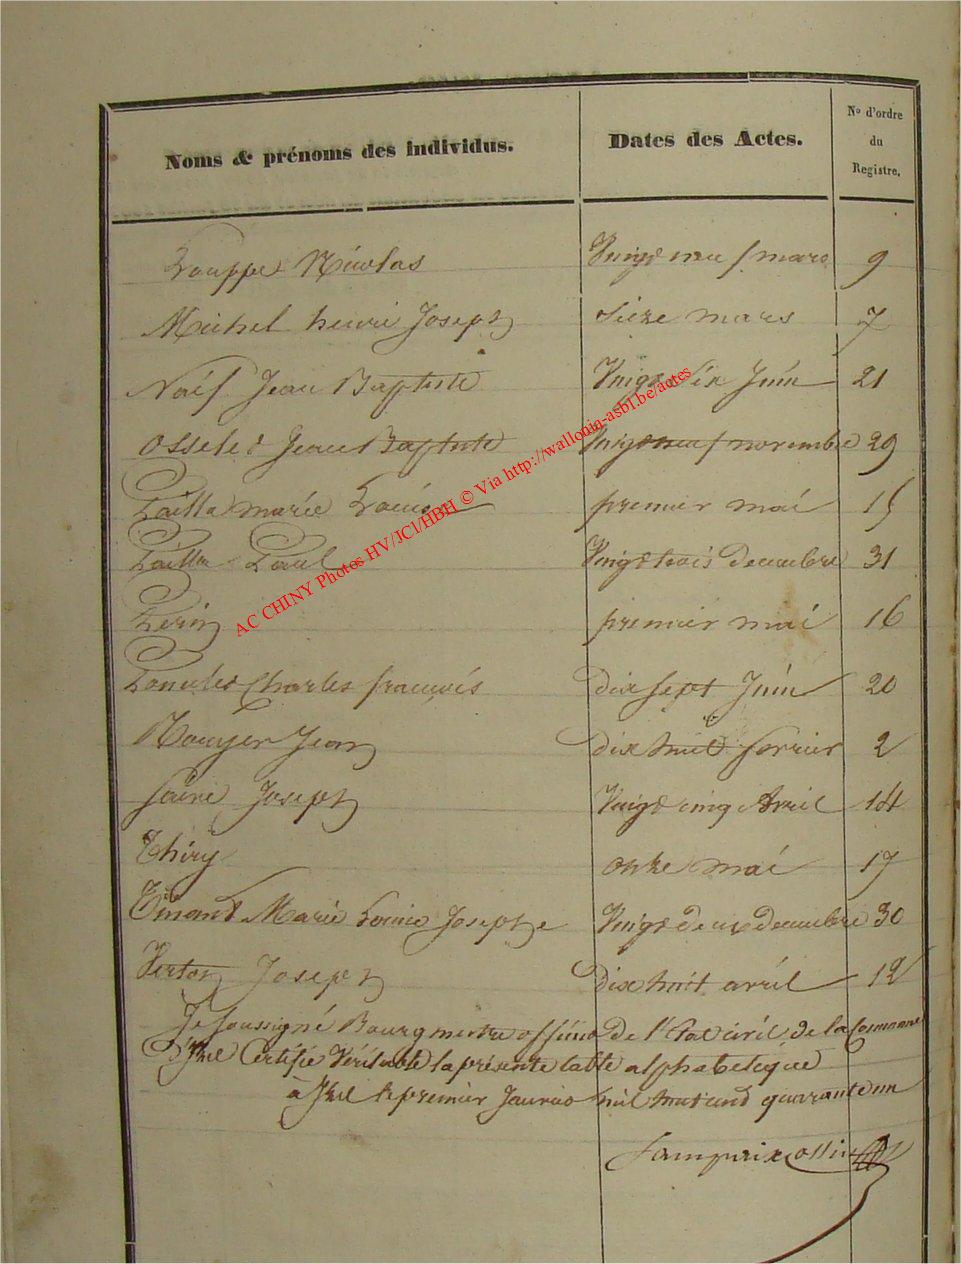 Noms & prénoms des individus. Dates des Actes. No d'ordre du Registre.
Louppe Nicolas Vingt neuf mars 9
Michel henri Joseph Seize mars 7
Naif Jean Baptiste Vingt Six Juin 21
Osselet Jean Baptiste Vingt neuf novembre 29
Pailla marie Louise premier mai 15
Pailla Paul Vingt trois decembre 31
premier mai 16
Poncelet Charles francois Dix Sept Juin 20
Rouyer Jean Dix huit fevrier 2
Joseph Vingt cinq Avril 14
Thiry onze mai 17
Tinant Marie Louise Josephe Vingt Deux decembre 30
Verton Joseph Dix huit avril 12
Je Soussigné Bourgmestre officier De l'Etat civil de la Commune
D'Izel Certifie Véritable la présente table alphabetique
à Izel le premier Janvier mil huit cent quarante un
AC CHINY Photos HV/JCl/HBH © Via http://wallonia-asbl.be/actes